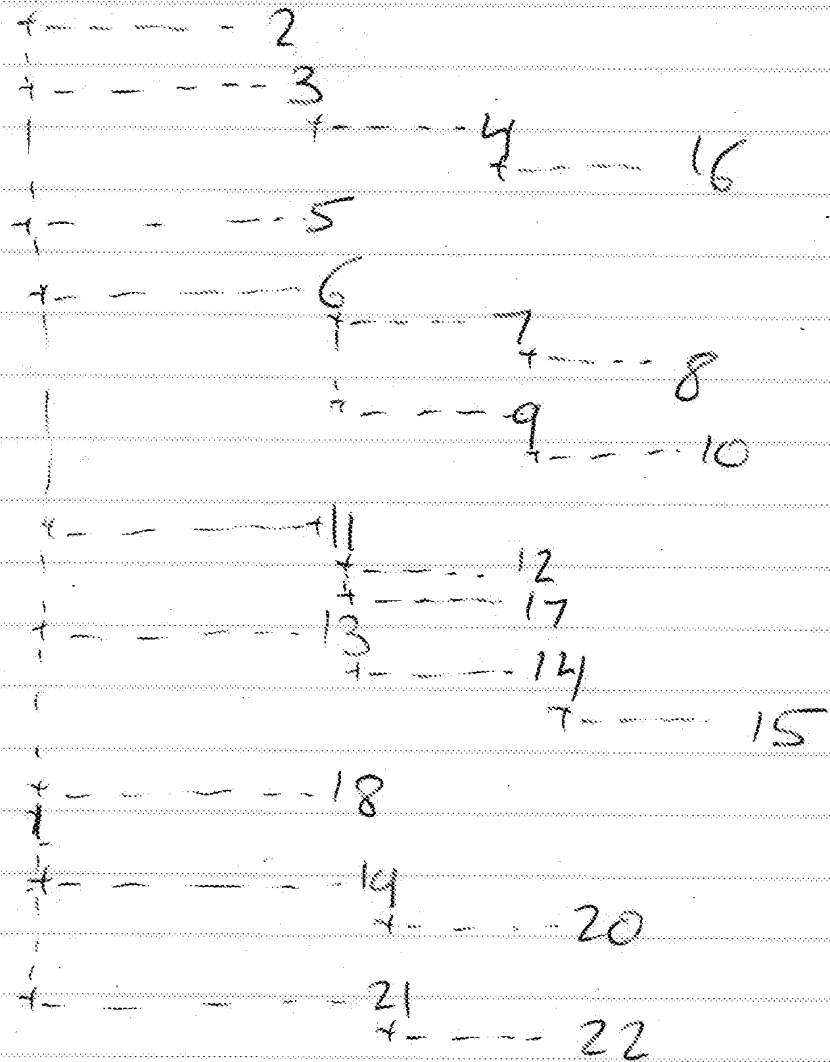 +---- 2
+---- 3
+---- 4
+---- 16
+---- 5
+---- 6
+---- 7
+---- 8
+---- 9
+---- 10
+----+ 11
+---- 12
+---- 17
+---- 13
+---- 14
+---- 15
+---- 18
+---- 19
+---- 20
+---- 21
+---- 22